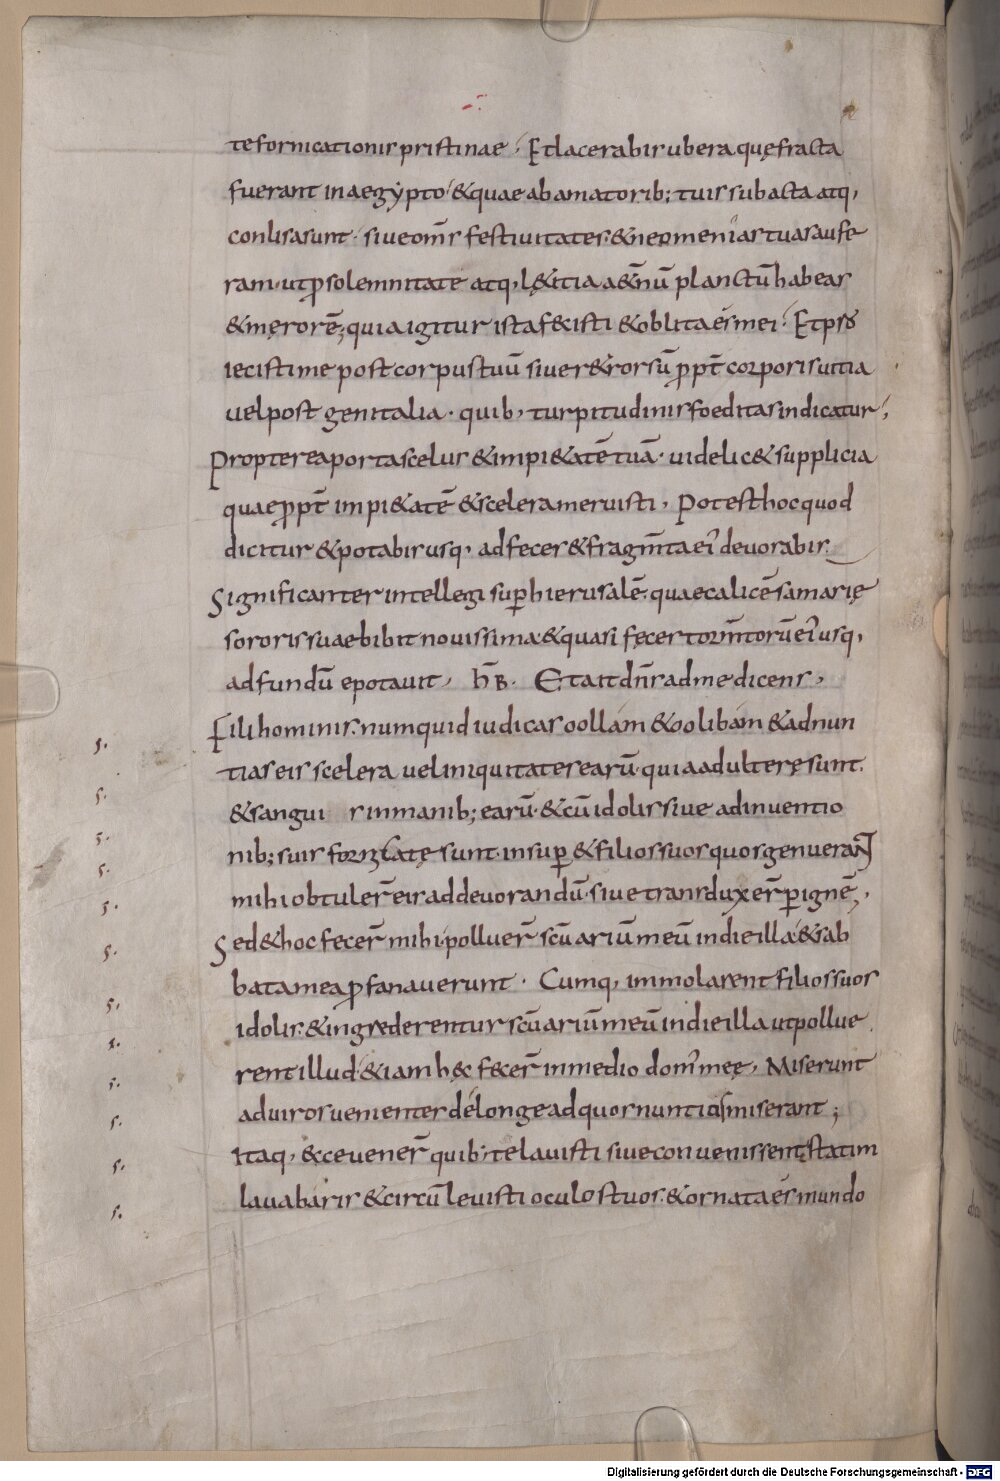 te fornicationis pristinae · Et lacerabis ubera quę fracta
fuerant in aegypto & quae ab amatorib; tuis subacta atq,
conlisa sunt · siue om̄s festiuitates · & neomenias tuas aufe
ram · ut p solemnitate atq, l&itia a&ernū planctū habeas
& męrorē; quia igitur ista fecisti & oblita és mei · Et p
iecisti me post corpus tuū siue r&rorsū ppt̄ corporis uitia
uel post genitalia · quib, turpitudinis foeditas indicatur;
Propterea porta scelus & impi&atē tuā · uidelic& supplicia
quae ppt̄ impi&atē & scelera meruisti, Potest hoc quod
dicitur & potabis usq, ad feces & fragm̄ta ei devorabis.
Significanter intellegi sup hierusalē; quae calicē samarię
sororis suae bibit nouissima & quasi fęces tormtorū ei usq,
ad fundū epotauit, h̄B. Et ait dn̄s ad me dicens,
Fili hominis. numquid iudicas oollam & oolibam & adnun
tias eis scelera uel iniquitates earū · quia adulterę sunt.
& sangui s in manib; earū · & cū idolis siue adinuentio
nib; suis fornicatę sunt · insup & filios suos quos genuerant
mihi obtuler̄ eis ad deuorandū · siue transduxer̄ p ignē,
Sed & hoc fecer̄ mihi polluer̄ scūariū meū in die illa & sab
bata mea pfanauerunt · Cumq, immolarent filios suos
idolis · & ingrederentur scūariū meū in die illa ut pollue
rent illud · & iam hęc fecer̄ in medio dom' meę, Miserunt
ad uiros uenientes de longe ad quos nuntios miserant;
Itaq, ecce uener̄ quib; te lauisti siue con uenissent statim
lauabaris & circūleuisti oculos tuos · & ornata és mundo
s.
s.
s.
s.
s.
s.
s.
s.
s.
s.
s.
s.
Digitalisierung gefördert durch die Deutsche Forschungsgemeinschaft - DFG